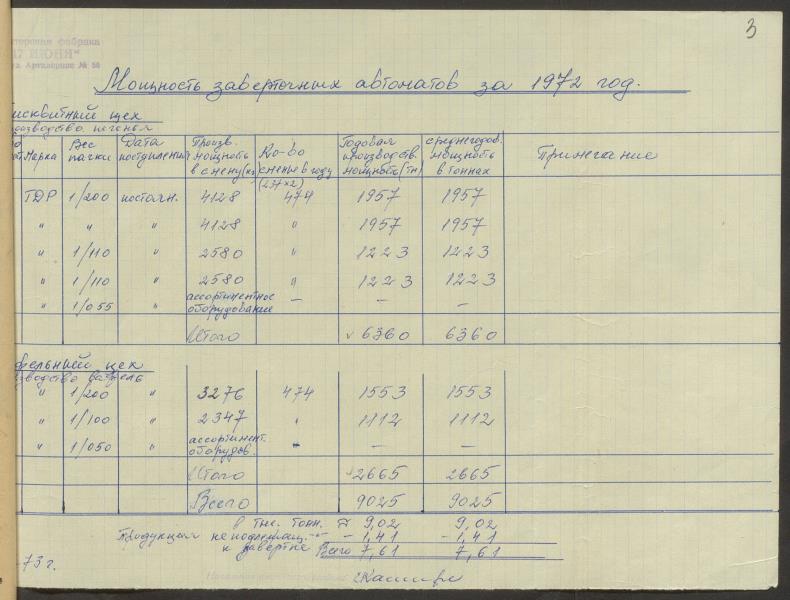 3
торская фабрика
17 ИЮНЯ"
Артлерная № 50
Мощность заверточных автоматов за 1972 год.
исквитный цех
роизводство печенья
Марка Вес пачки Дата поступления Произв. мощность в смену(кг) Ко-во смене в году (237×2) Годовая производств. мощность(тн) среднегодов. мощность в тоннах Примечание
ГДР 1/200 постоян. 4128 474 1957 1957
" " " 4128 " 1957 1957
" 1/110 " 2580 " 1223 1223
" 1/110 " 2580 " 1223 1223
" 1/055 " ассортиментное оборудование - - -
Итого 6360 6360
фельный цех
изводство вафель
" 1/200 " 3276 474 1553 1553
" 1/100 " 2347 " 1112 1112
" 1/050 " ассортимент. оборудов. - - -
Итого 2665 2665
Всего 9025 9025
в тыс. тонн. ≈ 9,02 9,02
Продукция неподлежащ. - 1,41 - 1,41
к завертке Всего 7,61 7,61
73 г.